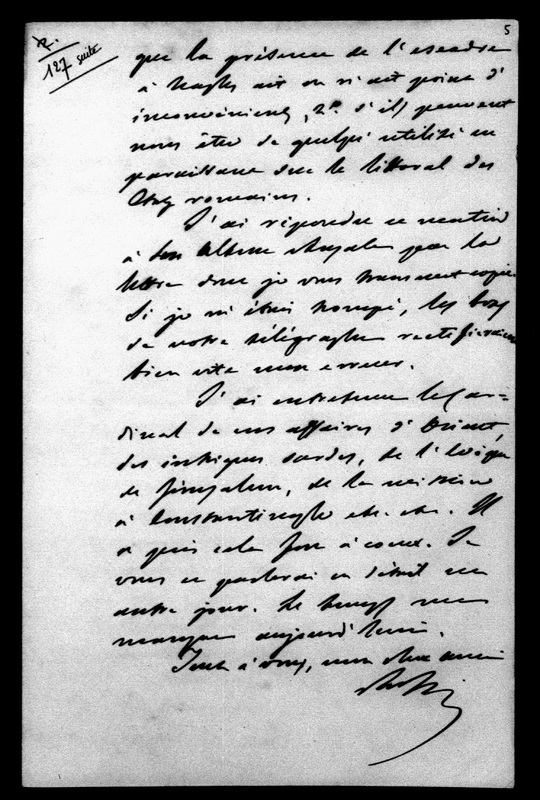 5
127 suite
que la présence de l'escadre
à Naples ait ou n'ait point d'
inconvénients, 2° s'il peuvent
nous être de quelque utilité en
paraissant sur le littoral des
Etats romains.
J'ai répondu ce matin
à Son Altesse Royale par la
lettre dont je vous transmets copie.
Si je m'étais trompé, les bras
de notre télégraphe rectifieraient
bien vite mon erreur.
J'ai entretenu le Car-
dinal de nos affaires d'Orient,
des intrigues sardes, de l'évêque
de Jérusalem, de la mission
à Constantinople etc. etc. Il
a pris cela fort à coeur. Je
vous en parlerai en détail un
autre jour. Le temps me
manque aujourd'hui.
Tout à vous, mon cher ami
Rossi